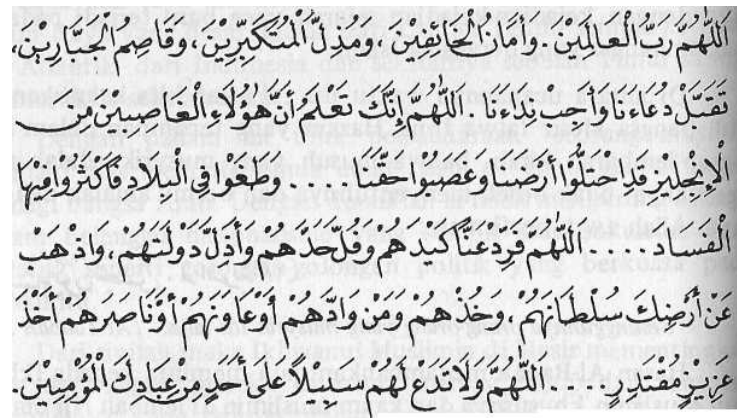 اَللّٰهُمَّ رَبَّ الْعَالَمِيْنَ، وَأَمَانَ الْخَائِفِيْنَ، وَمُذِلَّ الْمُتَكَبِّرِيْنَ، وَقَاصِمَ الْجَبَّارِيْنَ،
تَقَبَّلْ دُعَاءَنَا وَأَجِبْ نِدَاءَنَا. اَللّٰهُمَّ إِنَّكَ تَعْلَمُ أَنَّ هٰؤُلَاءِ الْغَاصِبِيْنَ مِنَ
الْإِنْجِلِيزِ قَدِ احْتَلُّوْا أَرْضَنَا وَغَصَبُوْا حَقَّنَا ... وَطَغَوْا فِي الْبِلَادِ فَأَكْثَرُوْا فِيهَا
الْفَسَادَ... اَللّٰهُمَّ فَرُدَّ عَنَّا كَيْدَهُمْ وَفُلَّ حَدَّهُمْ وَأَذِلَّ دَوْلَتَهُمْ، وَاذْهَبْ
عَنْ أَرْضِكَ سُلْطَانَهُمْ، وَخُذْهُمْ وَمَنْ وَادَّهُمْ أَوْعَاوَنَهُمْ أَوْنَاصَرَهُمْ أَخْذَ
عَزِيزٍ مُقْتَدِرٍ... اَللّٰهُمَّ وَلَا تَدَعْ لَهُمْ سَبِيْلًا عَلَى أَحَدٍ مِنْ عِبَادِكَ الْمُؤْمِنِيْنَ